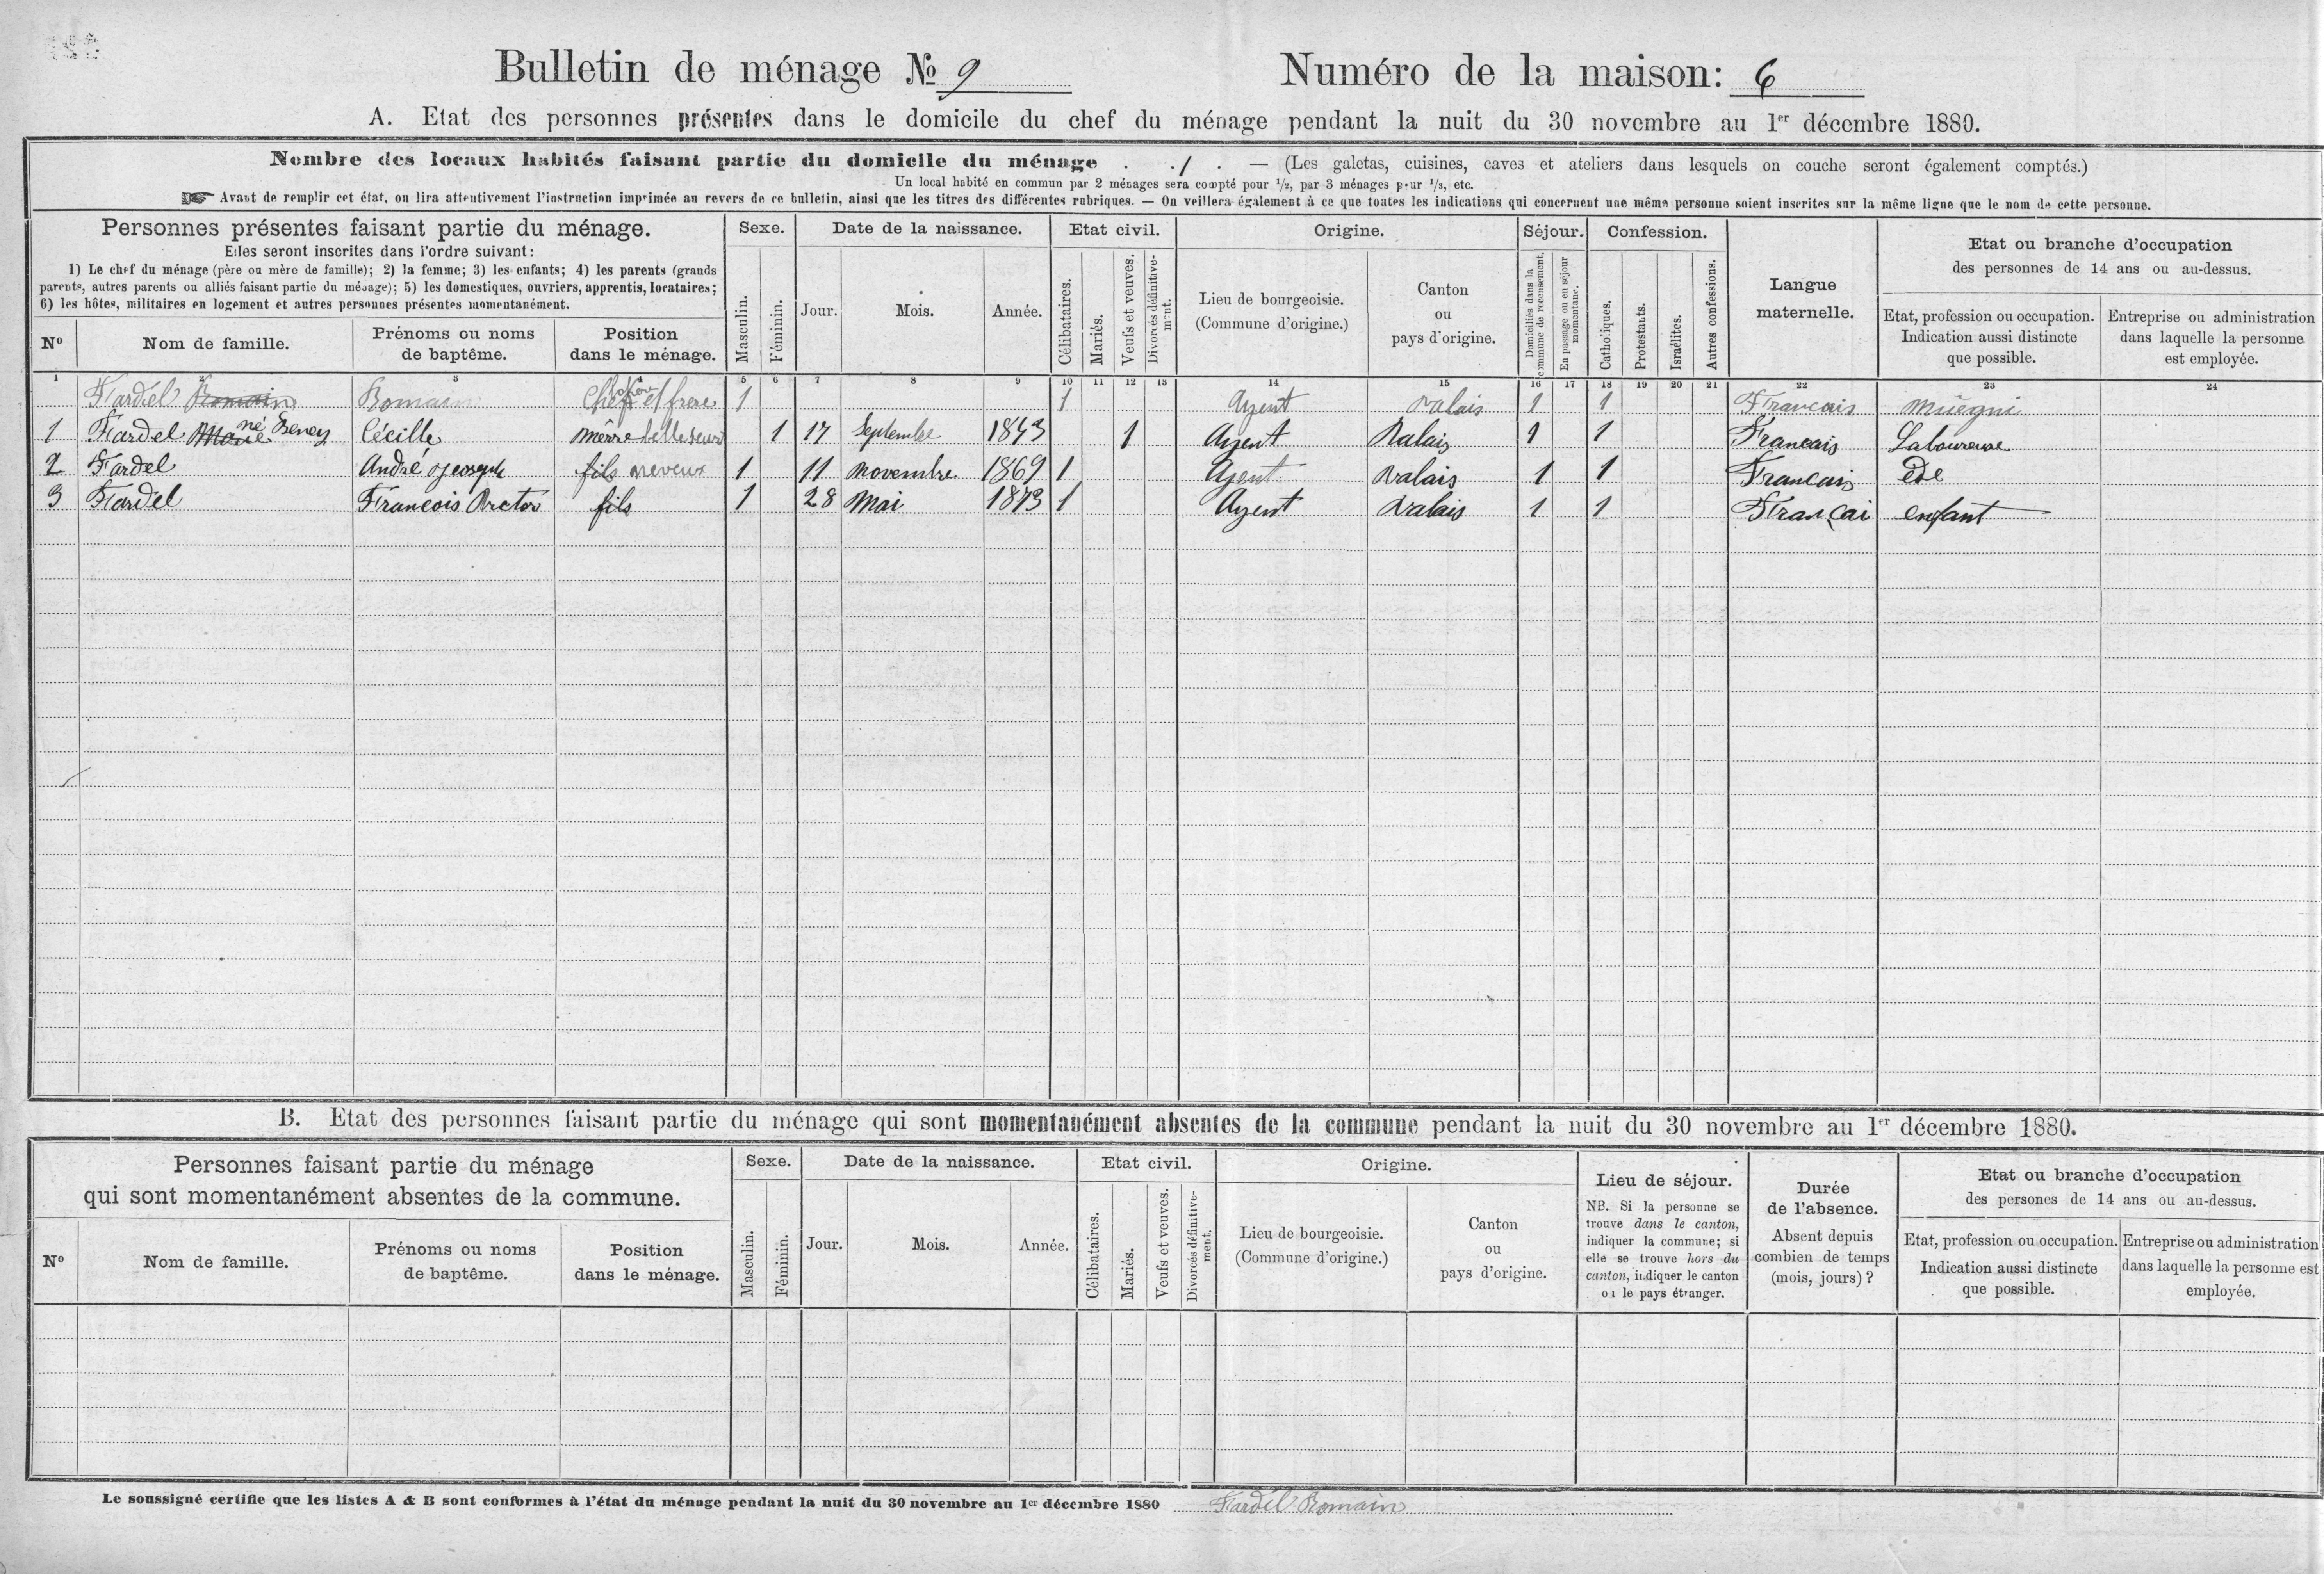 Bulletin de ménage № 9 Numéro de la maison: 6
A. Etat des personnes présentes dans le domicile du chef du ménage pendant la nuit du 30 novembre au 1er décembre 1880.
Nombre des locaux habités faisant partie du domicile du ménage . . 1 . — (Les galetas, cuisines, caves et ateliers dans lesquels on couche seront également comptés.)
Un local habité en commun par 2 ménages sera compté pour 1/2, par 3 ménages pour 1/3, etc.
☞ Avant de remplir cet état, on lira attentivement l'instruction imprimée au revers de ce bulletin, ainsi que les titres des différentes rubriques. — On veillera également à ce que toutes les indications qui concernent une même personne soient inscrites sur la même ligne que le nom de cette personne.
Personnes présentes faisant partie du ménage.
Elles seront inscrites dans l'ordre suivant:
1) Le chef du ménage (père ou mère de famille); 2) la femme; 3) les enfants; 4) les parents (grands
parents, autres parents ou alliés faisant partie du ménage); 5) les domestiques, ouvriers, apprentis, locataires;
6) les hôtes, militaires en logement et autres personnes présentes momentanément.
No Nom de famille. Prénoms ou noms de baptême. Position dans le ménage.
Sexe. Masculin. Féminin.
Date de la naissance. Jour. Mois. Année.
Etat civil. Célibataires. Mariés. Veufs et veuves. Divorcés définitivement.
Origine. Lieu de bourgeoisie. (Commune d'origine.) Canton ou pays d'origine.
Séjour. Domiciliés dans la commune de recensement. En passage ou en séjour momentané.
Confession. Catholiques. Protestants. Israélites. Autres confessions.
Langue maternelle.
Etat ou branche d'occupation
des personnes de 14 ans ou au-dessus.
Etat, profession ou occupation. Indication aussi distincte que possible.
Entreprise ou administration dans laquelle la personne est employée.
1 2 3 4 5 6 7 8 9 10 11 12 13 14 15 16 17 18 19 20 21 22 23 24
Fardel Romain Romain Chef frere 1 1 Ayent Valais 1 1 Francais
1 Fardel Marie né Beney Cécille mèrre belle seur 1 17 Septembre 1843 1 Ayent Valais 1 1 Francais Laboureuse
2 Fardel André Joseph fils neveux 1 11 novembre 1869 1 Ayent Valais 1 1 Francais
3 Fardel Francois Victor fils 1 28 Mai 1873 1 Ayent Valais 1 1 Françai enfant
B. Etat des personnes faisant partie du ménage qui sont momentanément absentes de la commune pendant la nuit du 30 novembre au 1er décembre 1880.
Personnes faisant partie du ménage
qui sont momentanément absentes de la commune.
No Nom de famille. Prénoms ou noms de baptême. Position dans le ménage.
Sexe. Masculin. Féminin.
Date de la naissance. Jour. Mois. Année.
Etat civil. Célibataires. Mariés. Veufs et veuves. Divorcés définitivement.
Origine. Lieu de bourgeoisie. (Commune d'origine.) Canton ou pays d'origine.
Lieu de séjour.
NB. Si la personne se
trouve dans le canton,
indiquer la commune; si
elle se trouve hors du
canton, indiquer le canton
ou le pays étranger.
Durée
de l'absence.
Absent depuis
combien de temps
(mois, jours)?
Etat ou branche d'occupation
des persones de 14 ans ou au-dessus.
Etat, profession ou occupation. Indication aussi distincte que possible.
Entreprise ou administration dans laquelle la personne est employée.
Le soussigné certifie que les listes A & B sont conformes à l'état du ménage pendant la nuit du 30 novembre au 1er décembre 1880 Fardel Romain